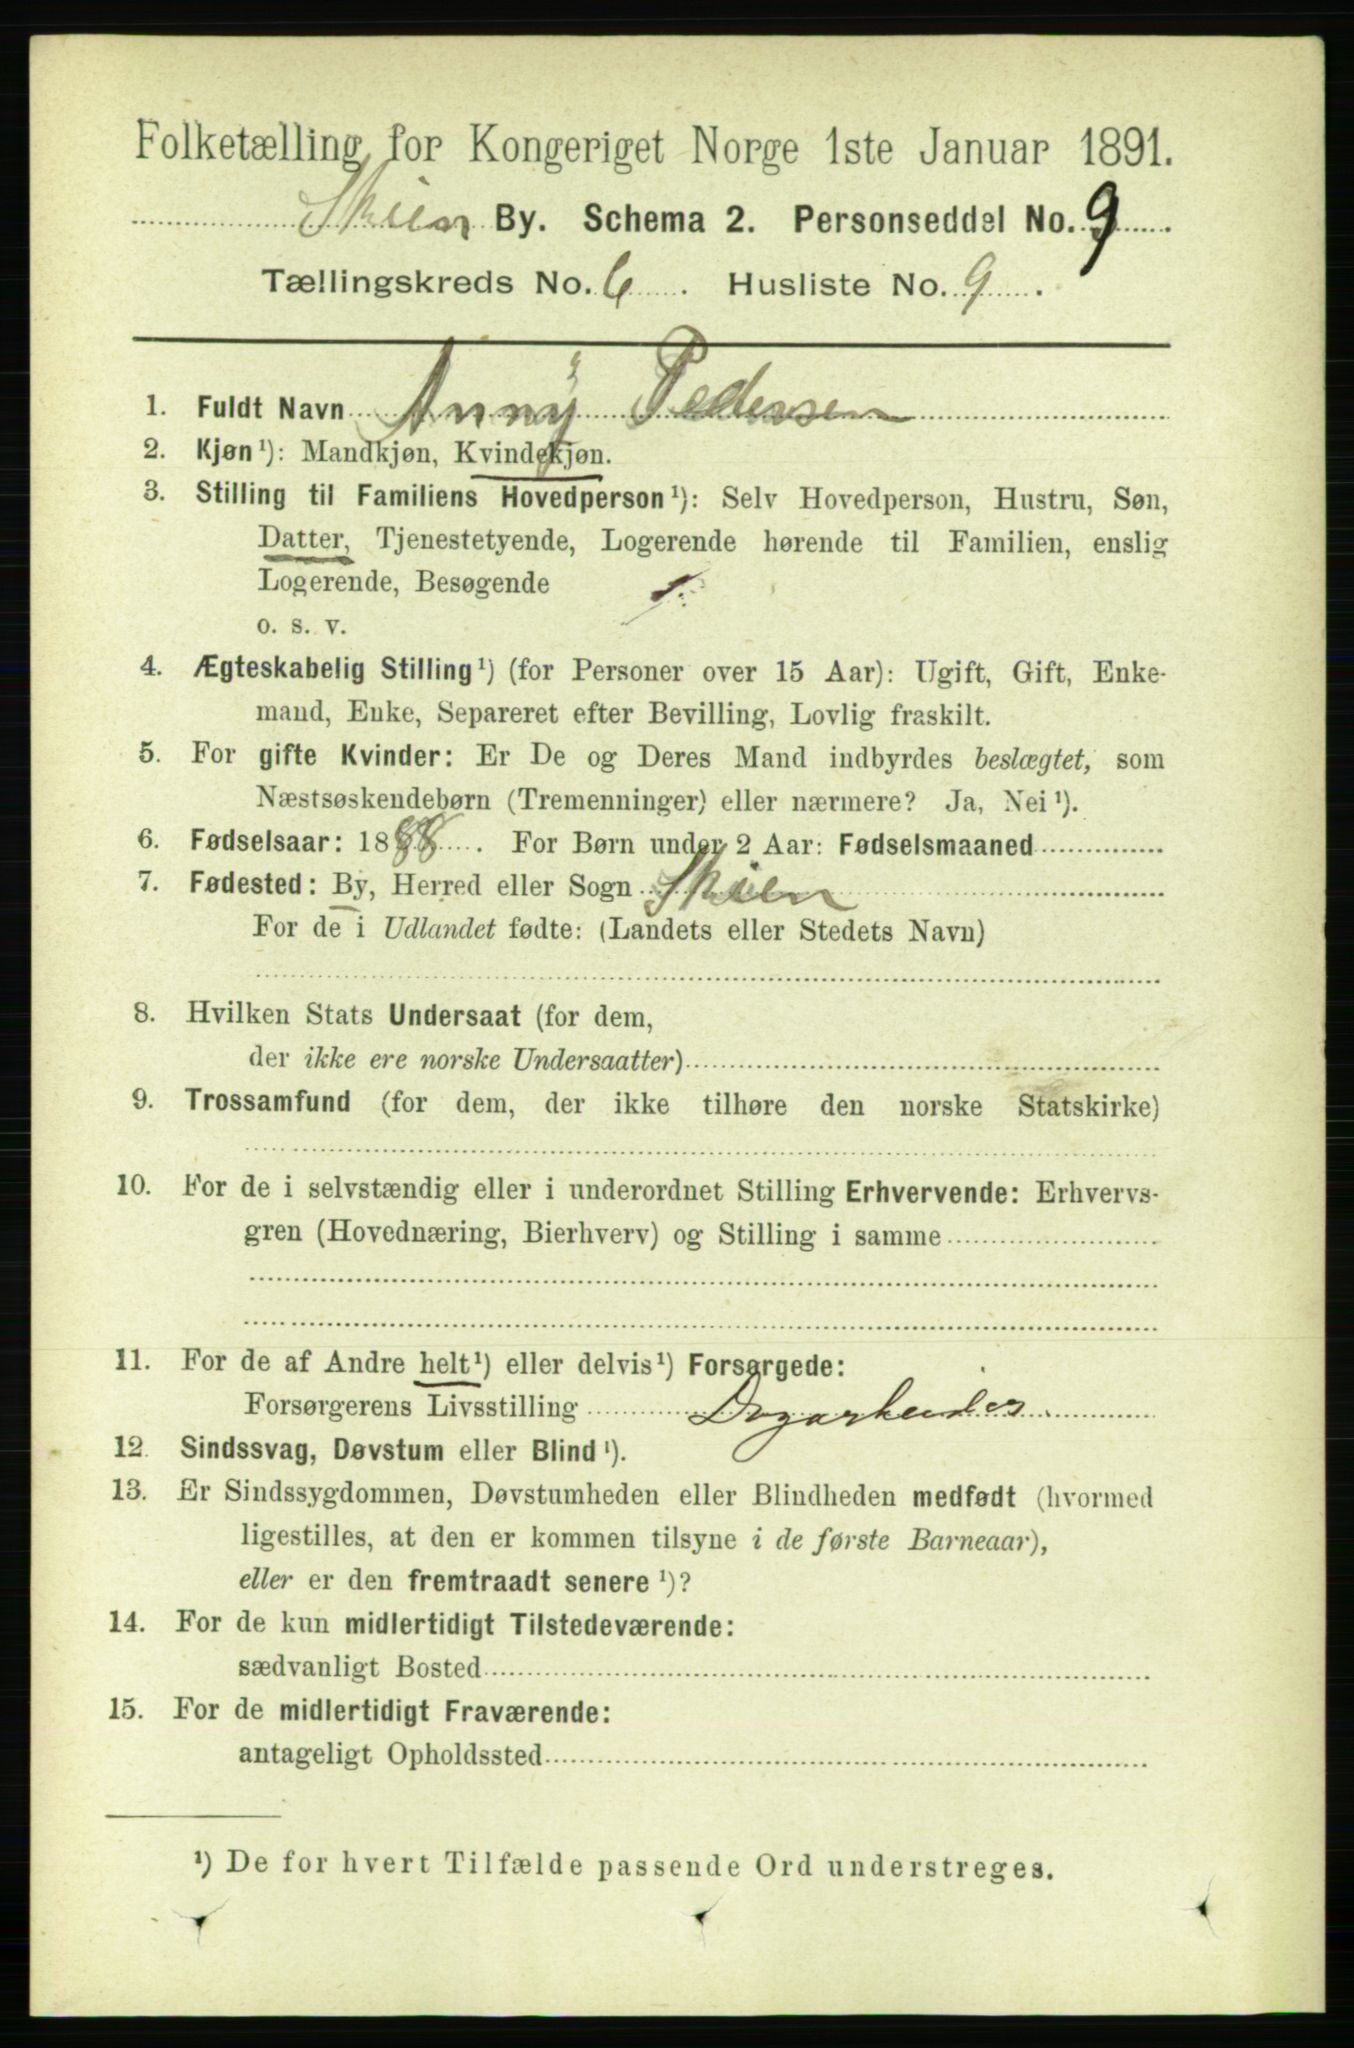 Folketælling for Kongeriget Norge 1ste Januar 1891.
Skien By. Schema 2. Personseddel No. 9.
Tællingskreds No. 6. Husliste No. 9.
1. Fuldt Navn Anny Pedersen
2. Kjøn¹): Mandkjøn, Kvindekjøn.
3. Stilling til Familiens Hovedperson¹): Selv Hovedperson, Hustru, Søn,
Datter, Tjenestetyende, Logerende hørende til Familien, enslig
Logerende, Besøgende
o. s. v.
4. Ægteskabelig Stilling¹) (for Personer over 15 Aar): Ugift, Gift, Enke-
mand, Enke, Separeret efter Bevilling, Lovlig fraskilt.
5. For gifte Kvinder: Er De og Deres Mand indbyrdes beslægtet, som
Næstsøskendebørn (Tremenninger) eller nærmere? Ja, Nei¹).
6. Fødselsaar: 1888. For Børn under 2 Aar: Fødselsmaaned
7. Fødested: By, Herred eller Sogn Skien
For de i Udlandet fødte: (Landets eller Stedets Navn)
8. Hvilken Stats Undersaat (for dem,
der ikke ere norske Undersaatter)
9. Trossamfund (for dem, der ikke tilhøre den norske Statskirke)
10. For de i selvstændig eller i underordnet Stilling Erhvervende: Erhvervs-
gren (Hovednæring, Bierhverv) og Stilling i samme
11. For de af Andre helt¹) eller delvis¹) Forsørgede:
Forsørgerens Livsstilling
12. Sindssvag, Døvstum eller Blind¹).
13. Er Sindssygdommen, Døvstumheden eller Blindheden medfødt (hvormed
ligestilles, at den er kommen tilsyne i de første Barneaar),
eller er den fremtraadt senere¹)?
14. For de kun midlertidigt Tilstedeværende:
sædvanligt Bosted
15. For de midlertidigt Fraværende:
antageligt Opholdssted
¹) De for hvert Tilfælde passende Ord understreges.